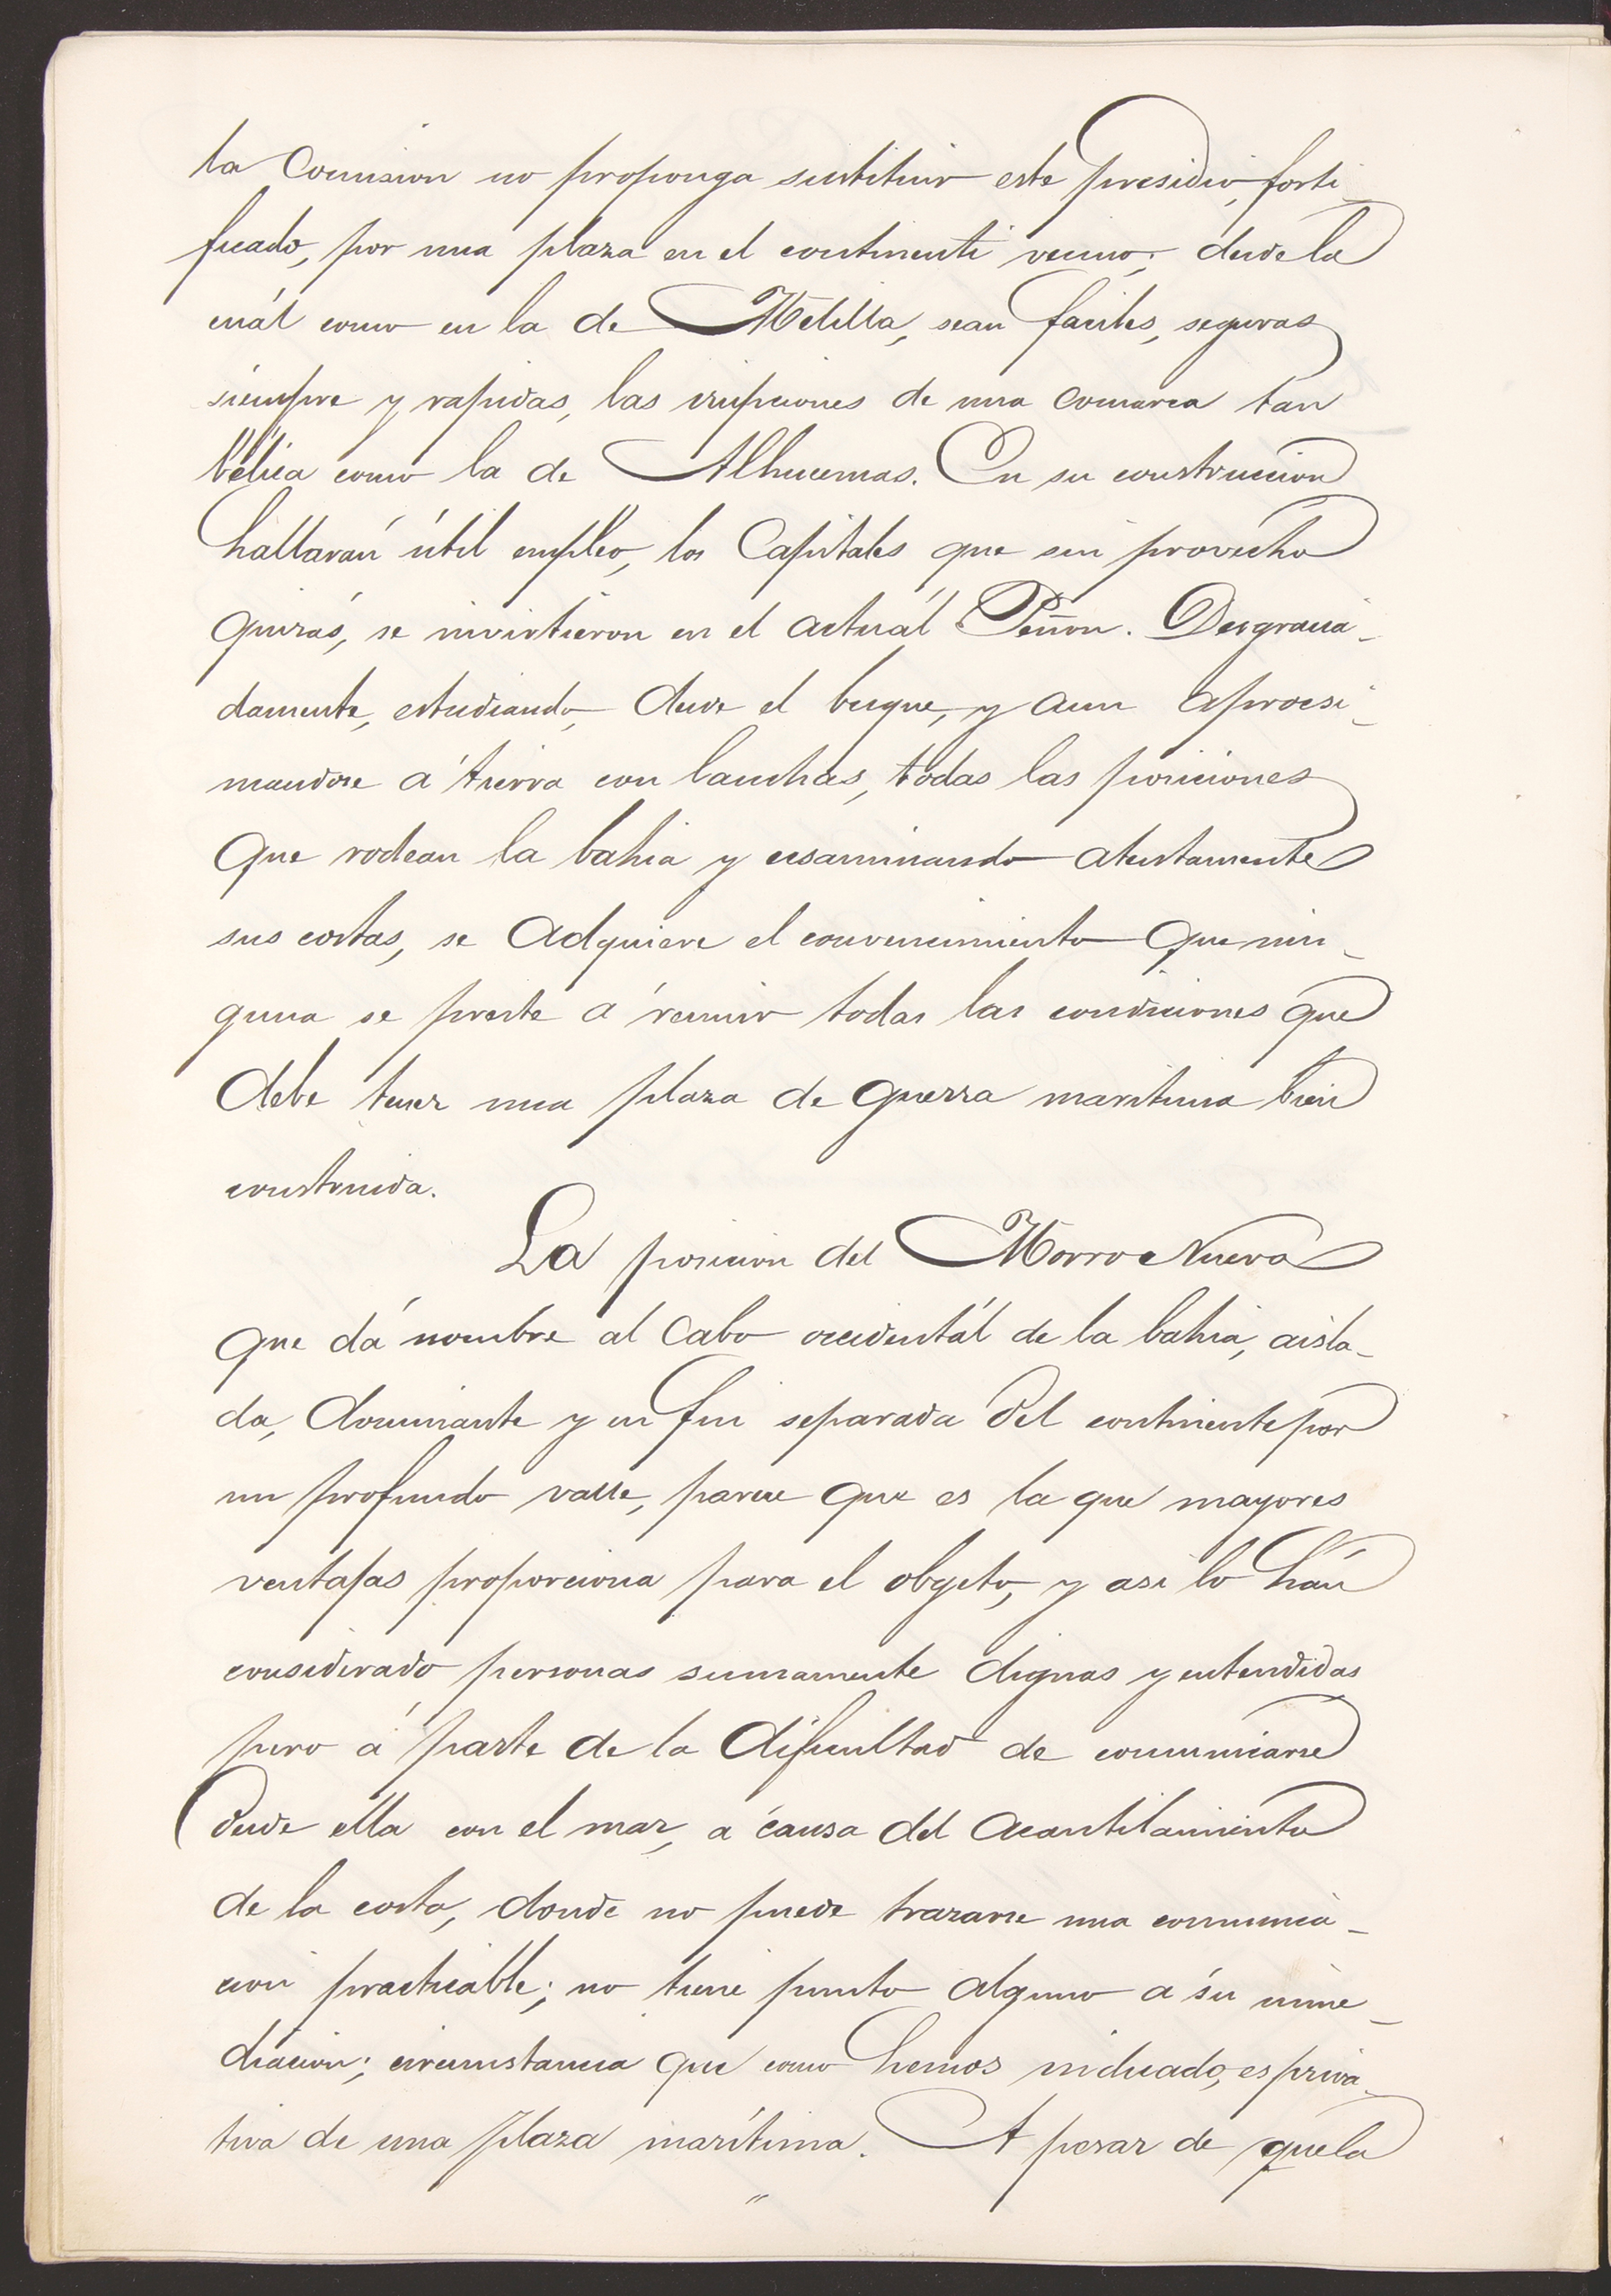 la Comision no proponga sustituir este presidio, forti_
ficado, por una plaza en el continente vecino; desde la
cuál como en la de Melilla, sean faciles, seguras
siempre y rapidas, las irupciones de una comarca tan
bélica como la de Alhucemas. En su construccion
hallarán útil empleo, los Capitales que sin provecho
quizás, se invirtieron en el actuál Peñon. Desgracia_
damente, estudiando, desde el buque, y aun aprocsi_
mandose á tierra con lanchas, todas las posiciones
que rodean la bahia y ecsaminando atentamente
sus costas, se adquiere el convencimiento que nin_
guna se preste á reunir todas las condiciones que
debe tener una plaza de guerra maritima bien
construida.
La posicion del Morro Nuevo
que dá nombre al Cabo occidentál de la bahia, aisla_
da, dominante y en fin separada del continente por
un profundo valle, parece que es la que mayores
ventajas proporciona para el objeto, y asi lo hán
considerado personas sumamente dignas y entendidas
pero á parte de la dificultad de comunicarse
desde ella con el mar, a causa del acantilamiento
de la costa, donde no puede trazarse una comunica_
cion practicable; no tiene punto alguno a su inme_
diacion; circunstancia que como hemos indicado, es priva_
tiva de una plaza marítima. A pesar de que la
"